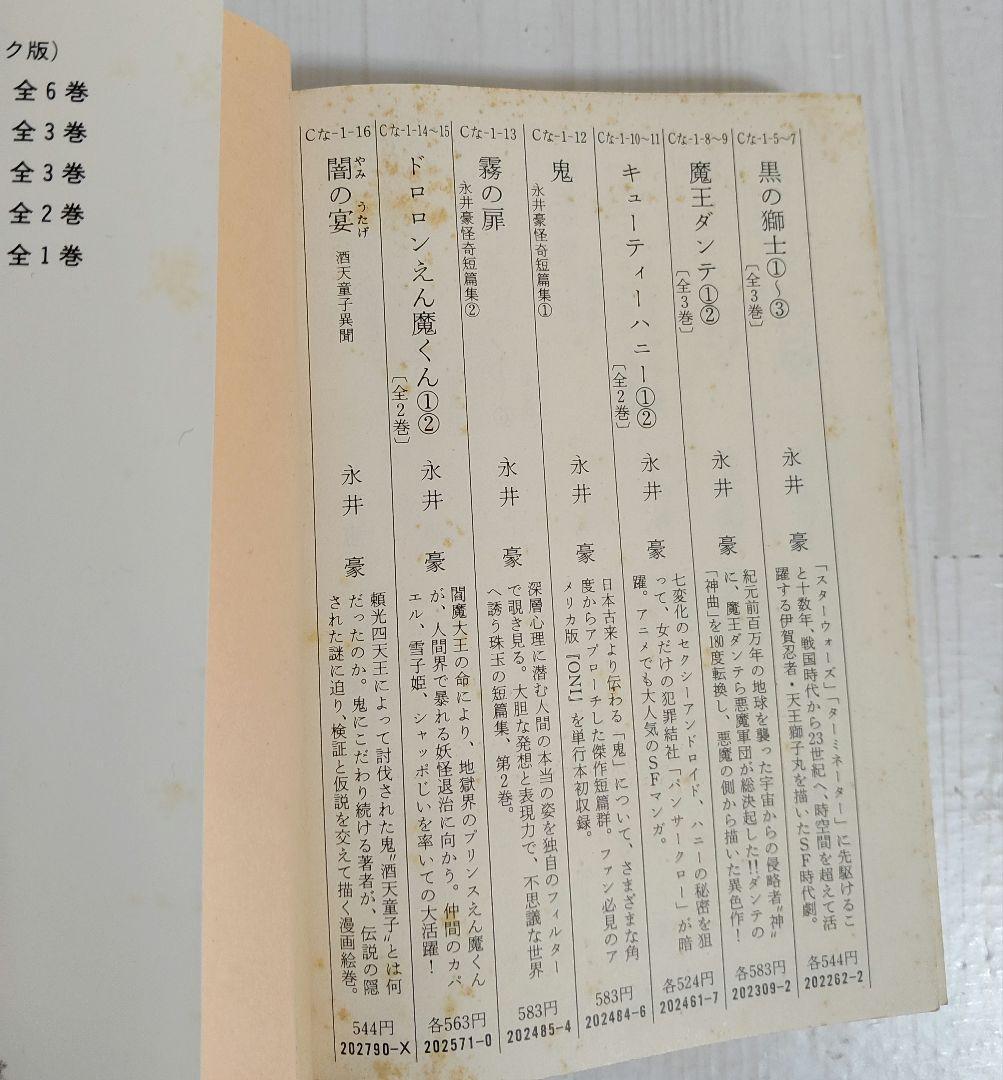 ク版）
全6巻
全3巻
全3巻
全2巻
全1巻
Cな-1-5～7
黒の獅士①～③
〔全3巻〕
永井　豪
「スターウォーズ」「ターミネーター」に先駆けるこ
と十数年、戦国時代から23世紀へ、時空間を超えて活
躍する伊賀忍者・天王獅子丸を描いたSF時代劇。
各544円
202262-2
Cな-1-8～9
魔王ダンテ①②
〔全3巻〕
永井　豪
紀元前百万年の地球を襲った宇宙からの侵略者〝神〟
に、魔王ダンテら悪魔軍団が総決起した!!ダンテの
「神曲」を180度転換し、悪魔の側から描いた異色作！
各583円
202309-2
Cな-1-10～11
キューティーハニー①②
〔全2巻〕
永井　豪
七変化のセクシーアンドロイド、ハニーの秘密を狙
って、女だけの犯罪結社「パンサークロー」が暗
躍。アニメでも大人気のSFマンガ。
各524円
202461-7
Cな-1-12
鬼
永井豪怪奇短篇集①
永井　豪
日本古来より伝わる「鬼」について、さまざまな角
度からアプローチした傑作短篇群。ファン必見のア
メリカ版『ONI』を単行本初収録。
583円
202484-6
Cな-1-13
霧の扉
永井豪怪奇短篇集②
永井　豪
深層心理に潜む人間の本当の姿を独自のフィルター
で覗き見る。大胆な発想と表現力で、不思議な世界
へ誘う珠玉の短篇集、第2巻。
583円
202485-4
Cな-1-14～15
ドロロンえん魔くん①②
〔全2巻〕
永井　豪
閻魔大王の命により、地獄界のプリンスえん魔くん
が、人間界で暴れる妖怪退治に向かう。仲間のカパ
エル、雪子姫、シャッポじいを率いての大活躍！
各563円
202571-0
Cな-1-16
闇の宴
やみ　うたげ
酒天童子異聞
永井　豪
頼光四天王によって討伐された鬼〝酒天童子〟とは何
だったのか。鬼にこだわり続ける著者が、伝説の隠
された謎に迫り、検証と仮説を交えて描く漫画絵巻。
544円
202790-X